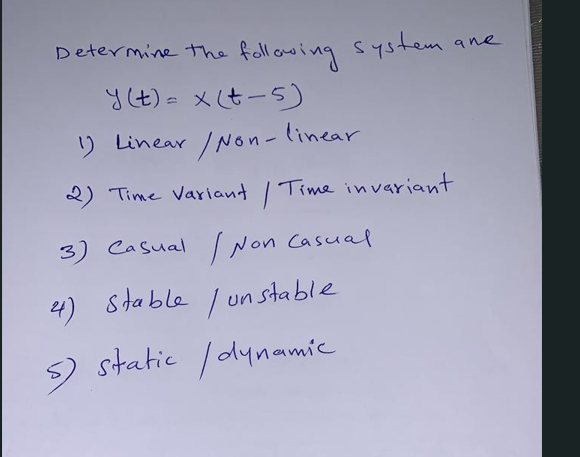 Determine the following system are
y(t) = x(t-5)
1) Linear / Non-linear
2) Time Variant / Time invariant
3) Casual / Non Casual
4) Stable / unstable
5) static / dynamic